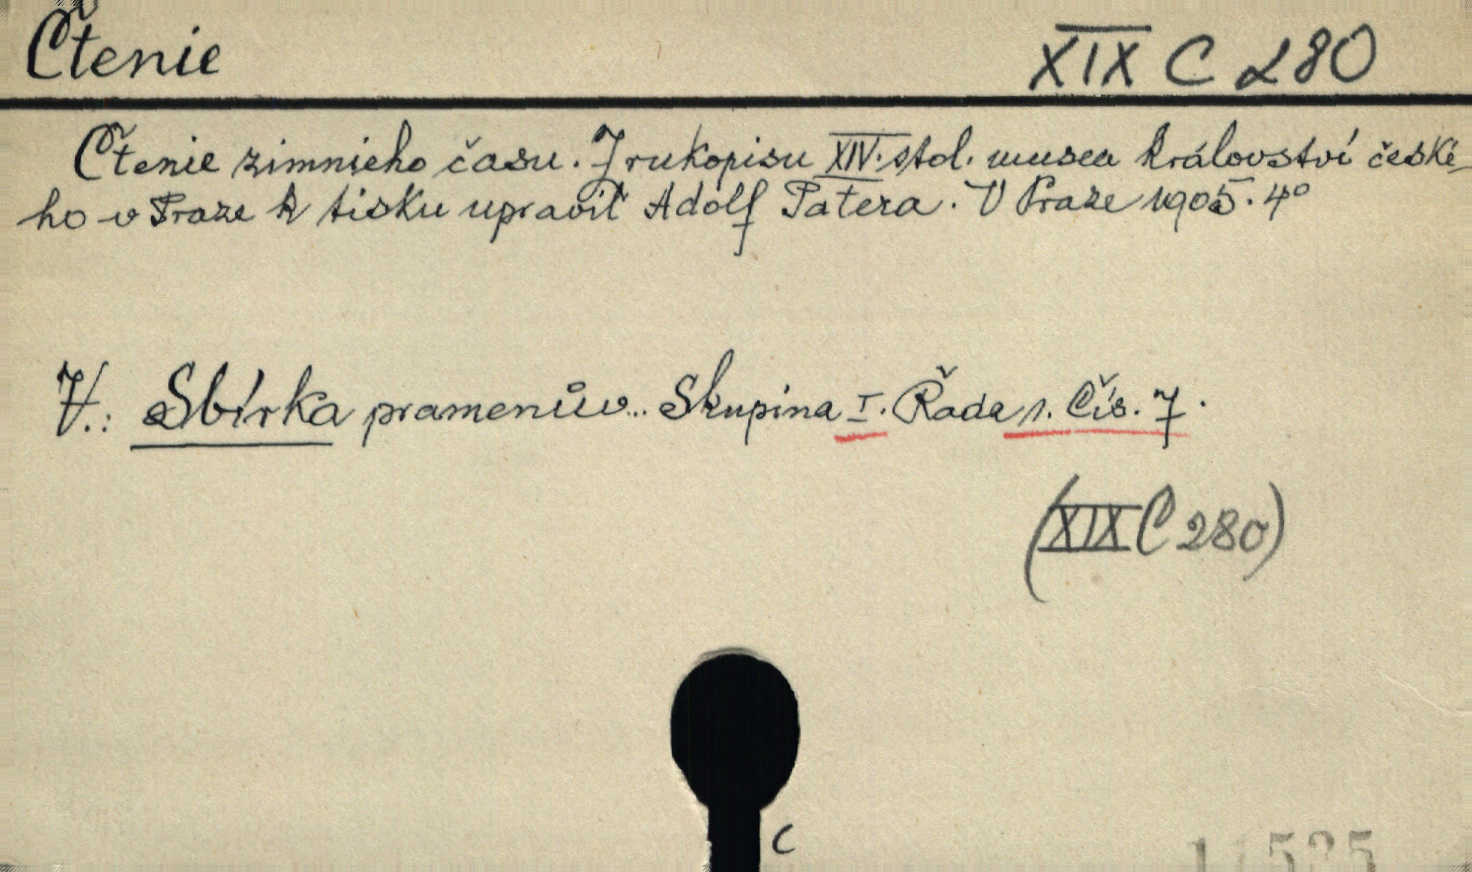 Čtenie XIX C 280
Čtenie zimnieho času. Z rukopisu XIV. stol. musea království české-
ho v Praze k tisku upravil Adolf Patera. V Praze 1905. 4°
V.: Sbírka pramenův... Skupina I. Řada 1. Čís. 7.
(XIX C 280)
C